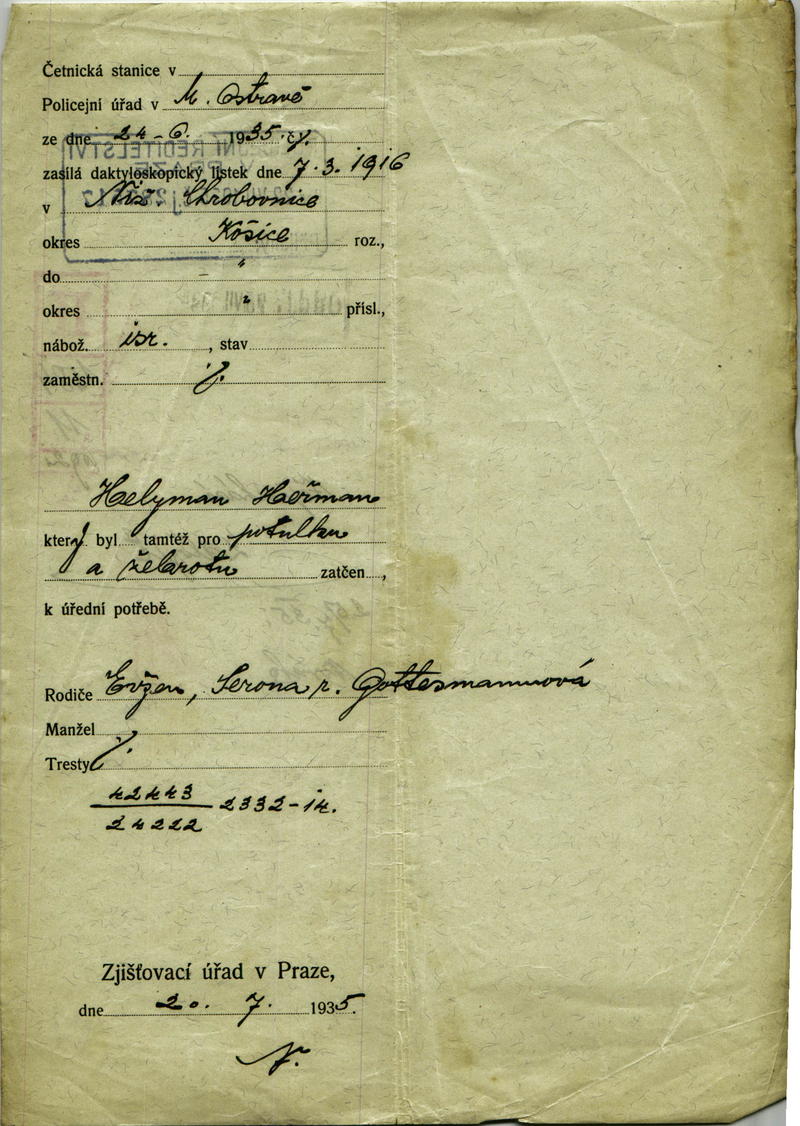 Četnická stanice v
Policejní úřad v M. Ostravě
ze dne 24-6. 1935 čj.
zasílá daktyloskopický lístek dne 7.3.1916
v Niž. Chrobovnice
okres Košice roz.,
do – "
okres " přísl.,
nábož. isr. , stav
zaměstn. ⁒
Helyman Heřman
který byl tamtéž pro potulku
a žebrotu zatčen ,
k úřední potřebě.
Rodiče Evžen, Serona r. Gottesmannová
Manžel
Tresty ⁒
42443
24222
2332-14.
Zjišťovací úřad v Praze,
dne 20. 7. 1935.
N.